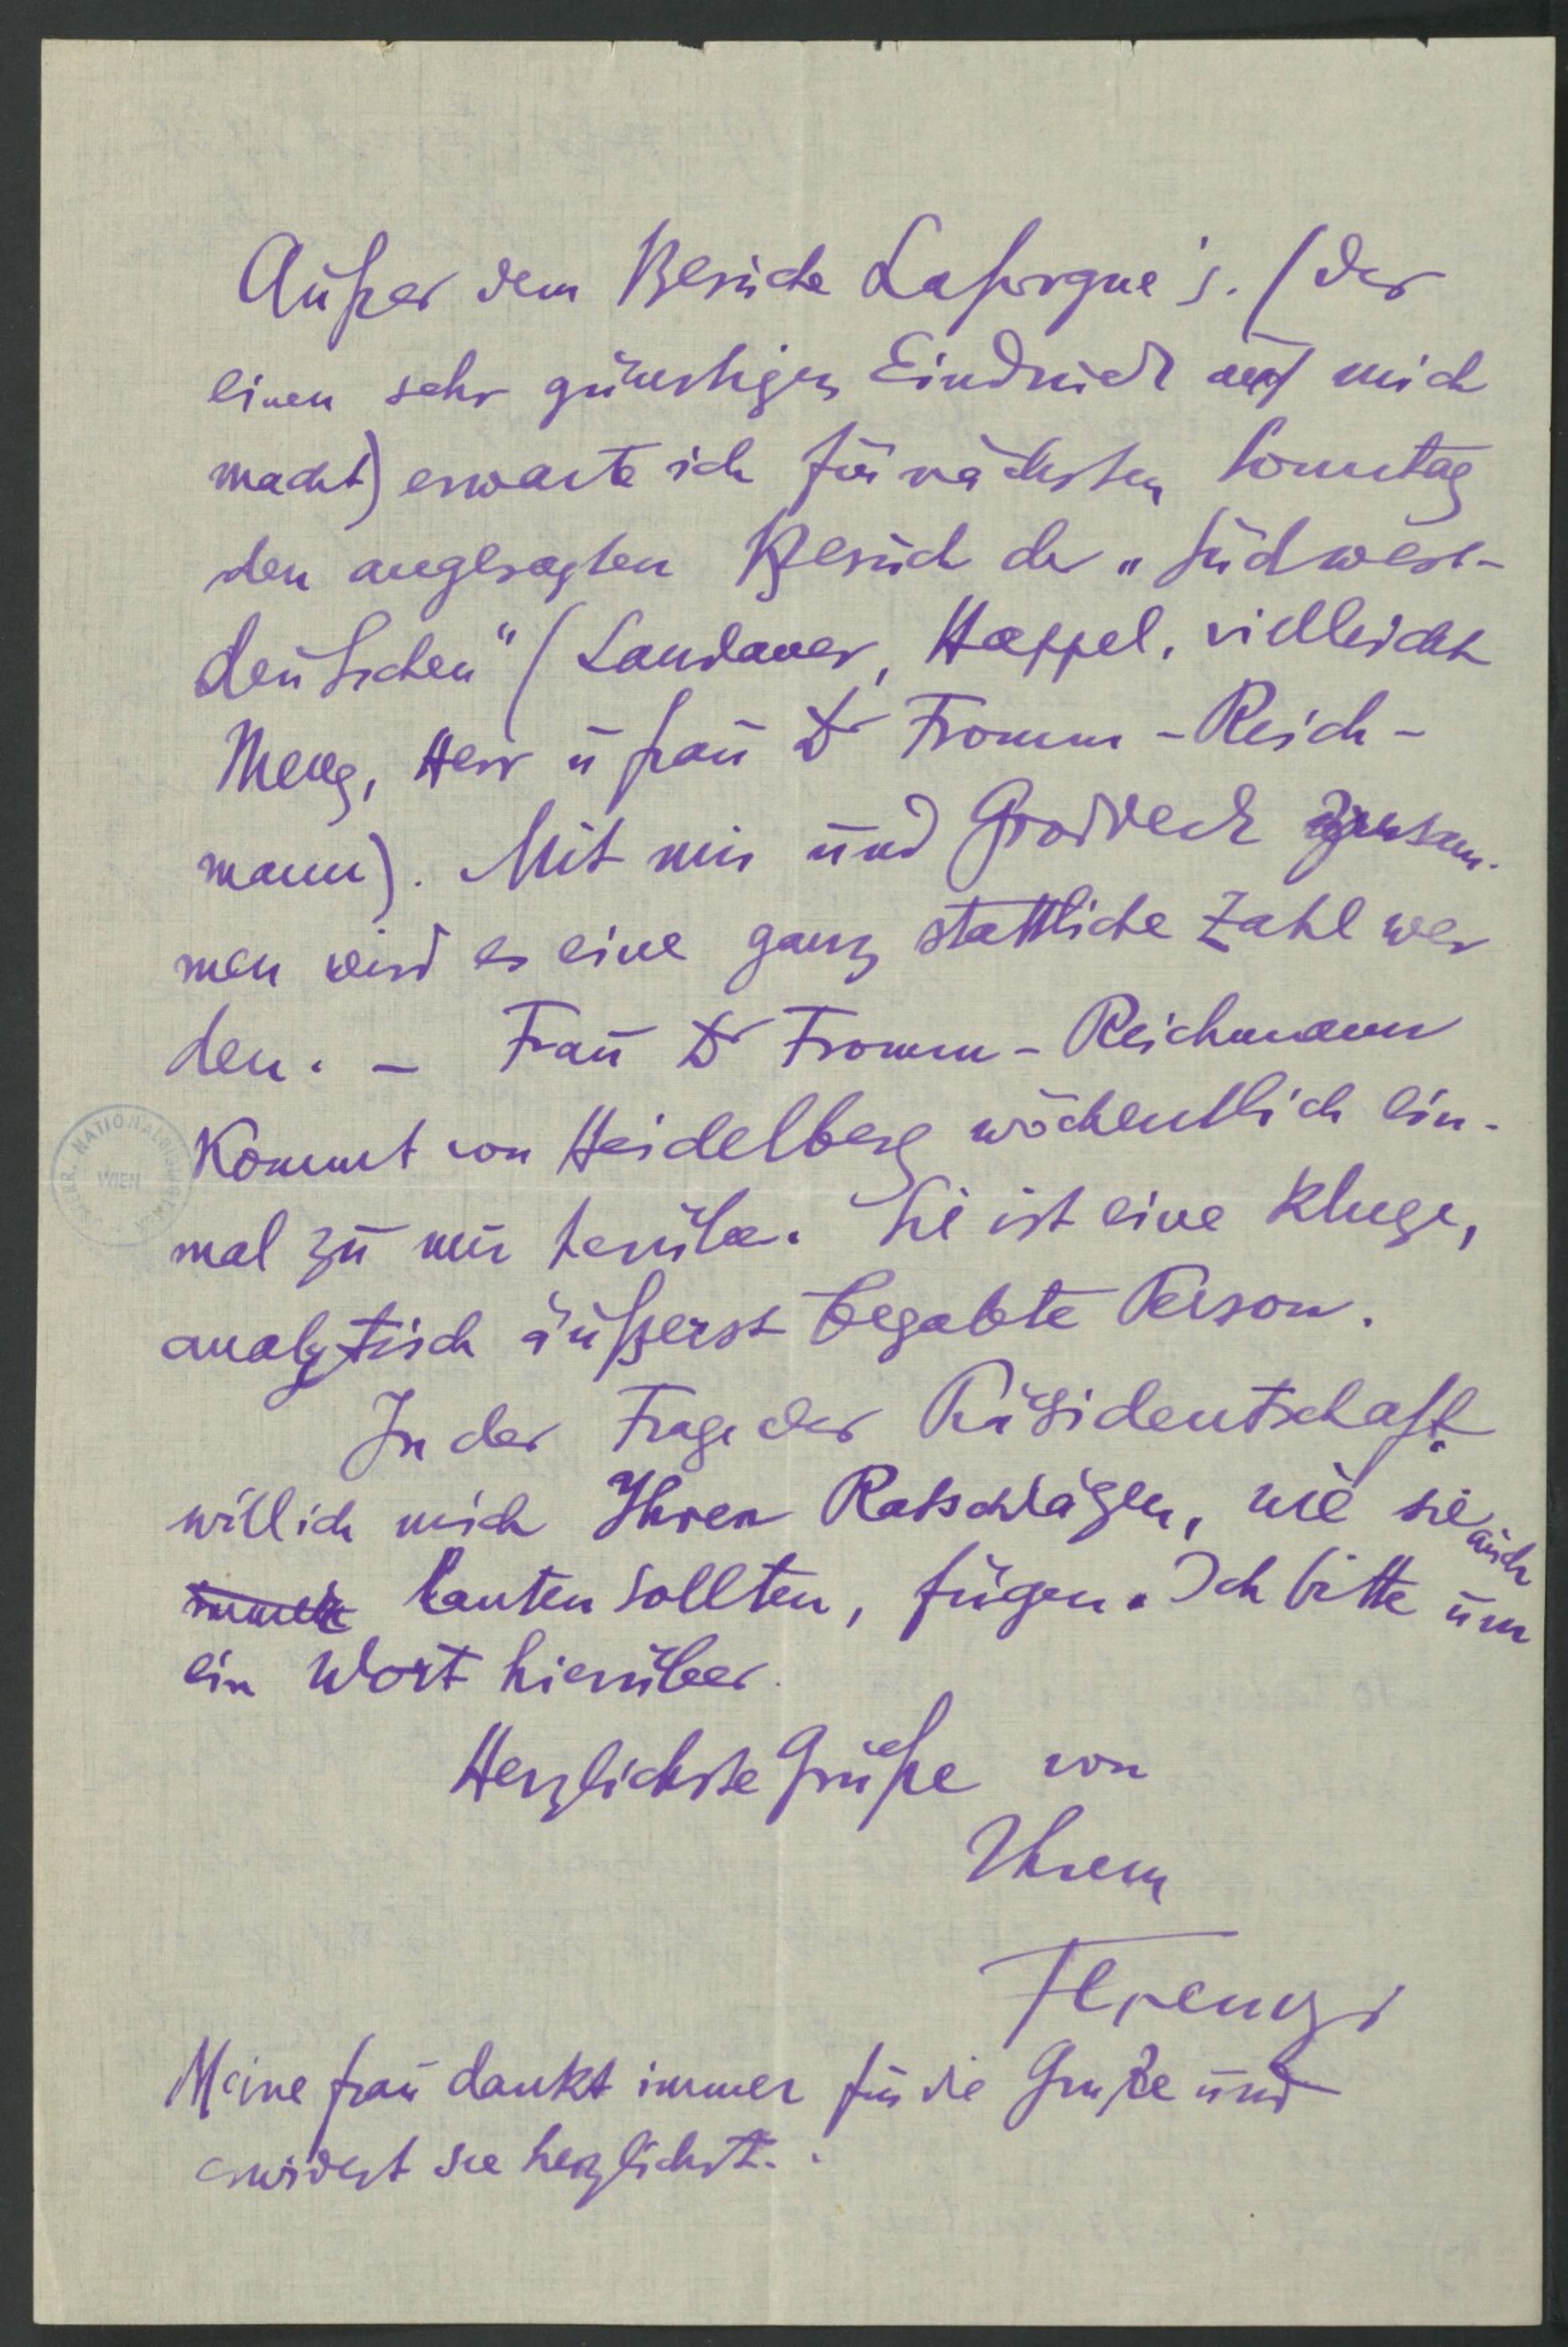 Außer dem Besuche Laforgue's. (der
einen sehr günstigen Eindruck auf mich
macht) erwarte ich für nächsten Sonntag
den angesagten Besuch der „Südwest-
deutschen" (Landauer, Happel, vielleicht
Meng, Herr u Frau Dr Fromm-Reich-
mann). Mit mir und Groddeck zusam-
men wird es eine ganz stattliche Zahl wer
den. – Frau Dr Fromm-Reichmann
kommt von Heidelberg wöchentlich ein-
mal zu mir herüber. Sie ist eine kluge,
analytisch äußerst begabte Person.
In der Frage der Präsidentschaft
will ich mich Ihren Ratschlägen, wie sie auch
immer lauten sollten, fügen. Ich bitte um
ein Wort hierüber.
Herzlichste Grüße von
Ihrem
Ferenczi
Meine Frau dankt immer für die Grüße und
erwidert sie herzlichst.
ÖSTERR. NATIONALBIBLIOTHEK
WIEN